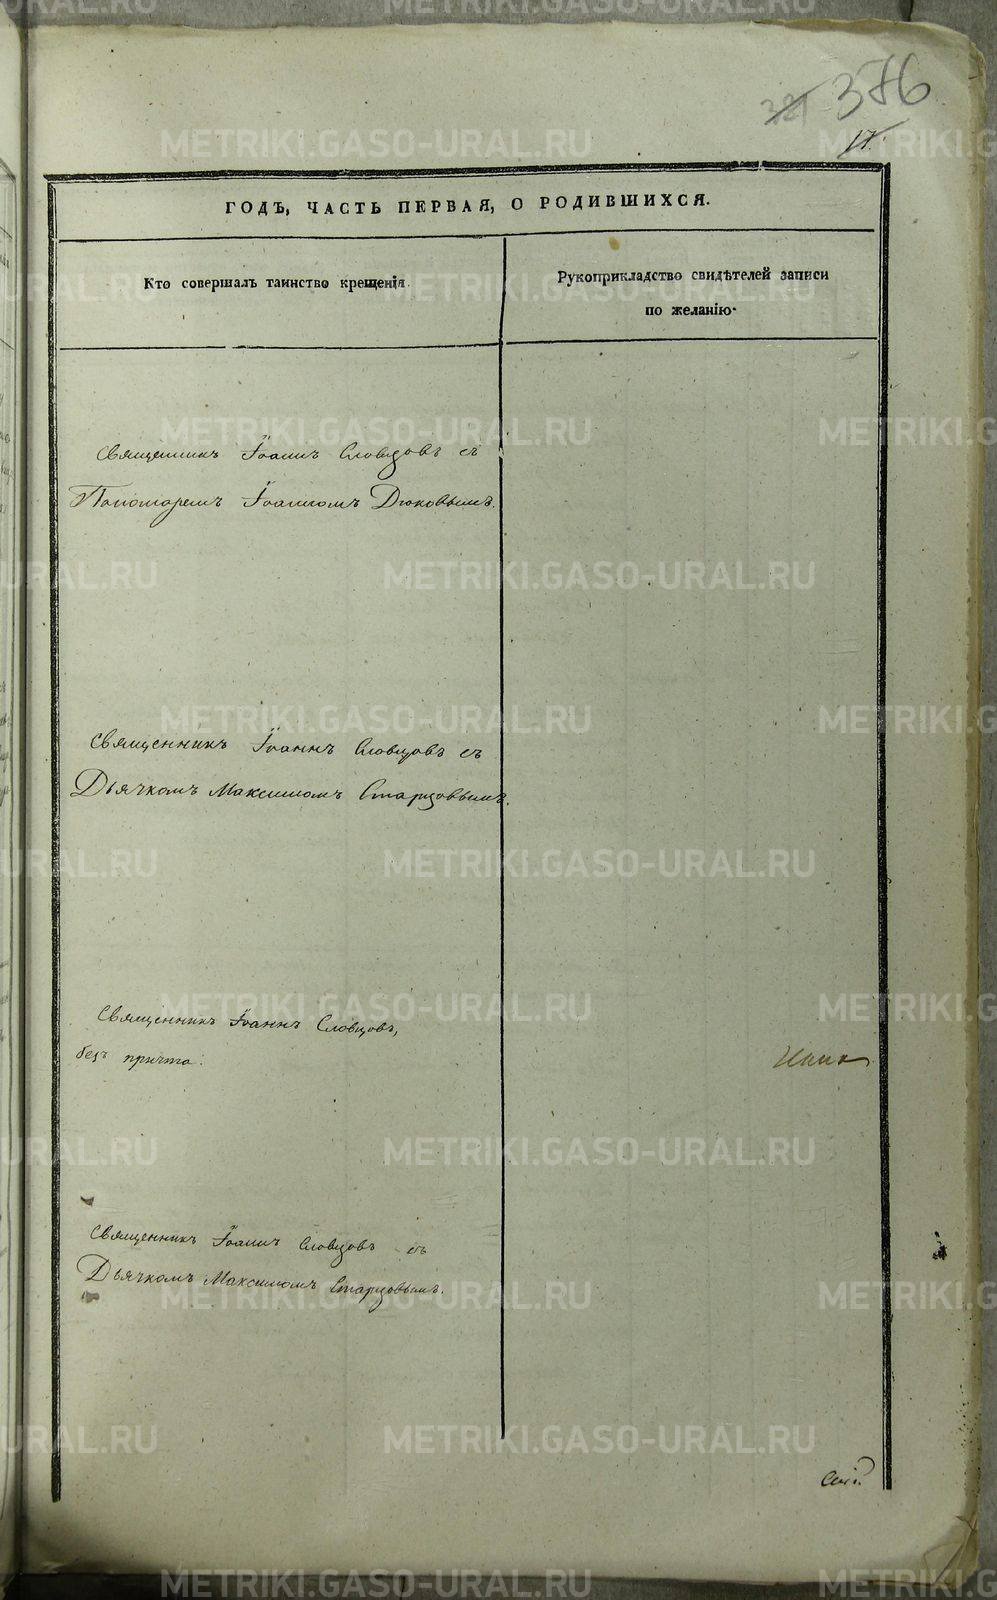 376
17.
ГОДЪ, ЧАСТЬ ПЕРВАЯ, О РОДИВШИХСЯ.
Кто совершалъ таинство крещенія.
Рукоприкладство свидѣтелей записи
по желанію.
Священникъ Іоаннъ Словцовъ съ
Пономаремъ Іоанномъ Дюковымъ.
Священникъ Іоаннъ Словцовъ съ
Дьячкомъ Максимомъ Старцовымъ.
Священникъ Іоаннъ Словцовъ,
безъ причта.
Священникъ Іоаннъ Словцовъ съ
Дьячкомъ Максимомъ Старцовымъ.
METRIKI.GASO-URAL.RU